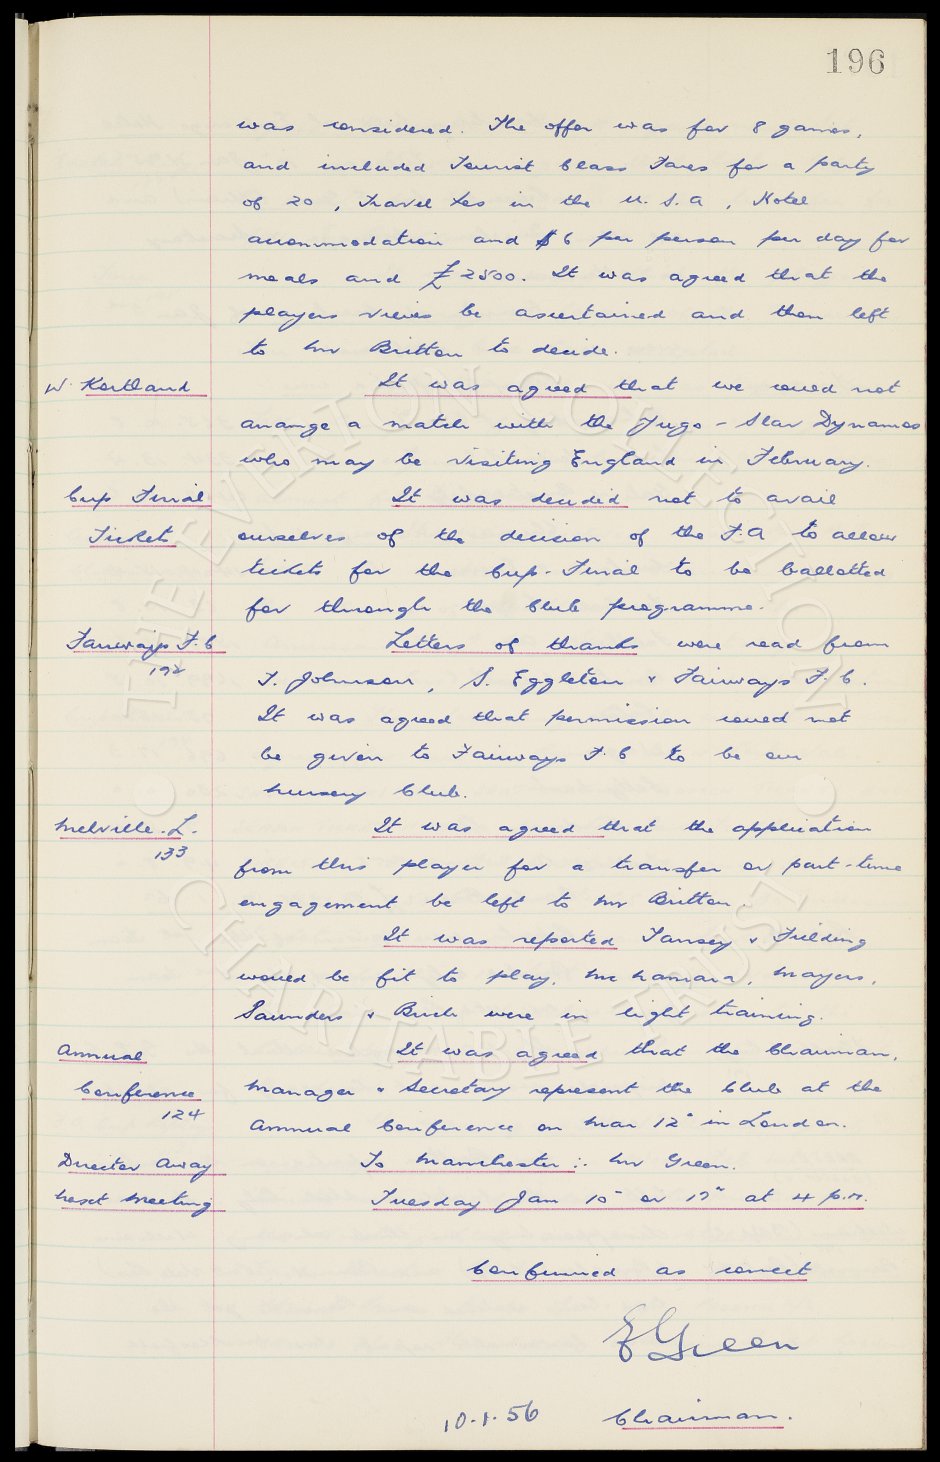 196
was considered. The offer was for 8 games,
and included Tourist Class Fares for a party
of 20, travel tax in the U.S.A, Hotel
accommodation and $6 per person per day for
meals and £2500. It was agreed that the
players views be ascertained and then left
to Mr Britton to decide.
W. Kortland It was agreed that we could not
arrange a match with the Jugo-Slav Dynamos
who may be visiting England in February.
Cup Final It was decided not to avail
Tickets ourselves of the decision of the F.A to allow
tickets for the Cup-Final to be balloted
for through the Club programme.
Fairways F.C Letters of thanks were read from
192 T. Johnson, S. Eggleton & Fairways F.C.
It was agreed that permission could not
be given to Fairways F.C to be our
nursery Club.
Melville. L. It was agreed that the application
133 from this player for a transfer or part-time
engagement be left to Mr Britton.
It was reported Tansey & Fielding
would be fit to play, McNamara, Mayers,
Saunders & Birch were in light training.
Annual It was agreed that the Chairman,
Conference Manager & Secretary represent the Club at the
124 Annual Conference on Mar 12" in London.
Director Away To Manchester :. Mr Green.
Next Meeting Tuesday Jan 10" or 17" at 4 p.m.
Confirmed as correct
E Green
10.1.56 Chairman.
THE EVERTON COLLECTION
CHARITABLE TRUST